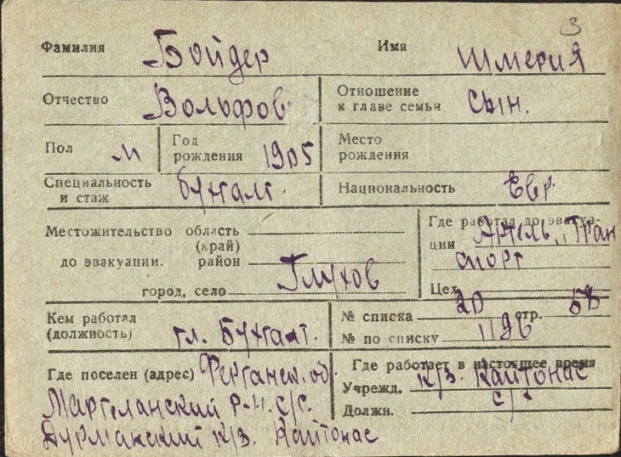 3
Фамилия Бойдер Имя Шмерия
Отчество Вольфов Отношение к главе семьи сын.
Пол М Год рождения 1905 Место рождения
Специальность и стаж бухгалт. Национальность Евр.
Местожительство область
(край)
до эвакуации. район
город, село Глухов
Где работал до эвакуа-
ции Артель „Тран
спорт
Цех
Кем работал (должность) гл. Бухгалт.
№ списка 20 стр. 58
№ по списку 1196
Где поселен (адрес) Ферганск. об.
Маргеланский р-н. с/с.
Дурманский к/з. Кайтонас
Где работает в настоящее время
Учрежд. к/з. Кайтонас
Должн. с/х